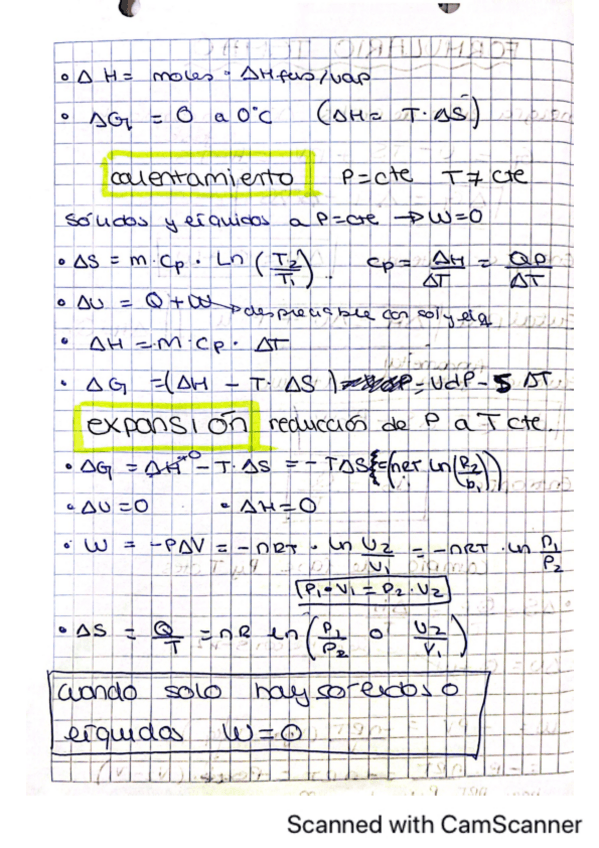 • ΔH = moles · ΔHfus/vap
• ΔG = 0 a 0°C (ΔH = T·ΔS)
calentamiento P=cte T≠cte
sólidos y líquidos a P=cte → W=0
• ΔS = m·Cp · Ln (T2/T1). Cp = ΔH/ΔT = QP/ΔT
• ΔU = Q + W → despreciable con sol y liq
• ΔH = m·Cp· ΔT
• ΔG = (ΔH - T· ΔS) = VdP - S ΔT
expansión reducción de P a T cte.
• ΔG = ΔH→0 - T·ΔS = - TΔS = (nRT Ln(P2/P1))
• ΔU = 0 • ΔH = 0
• W = -PΔV = -nRT · Ln V2/V1 = -nRT · Ln P1/P2
P1·V1 = P2·V2
• ΔS = Q/T = nR Ln (P1/P2 o V2/V1)
cuando solo hay solidos o
líquidos W=0
Scanned with CamScanner